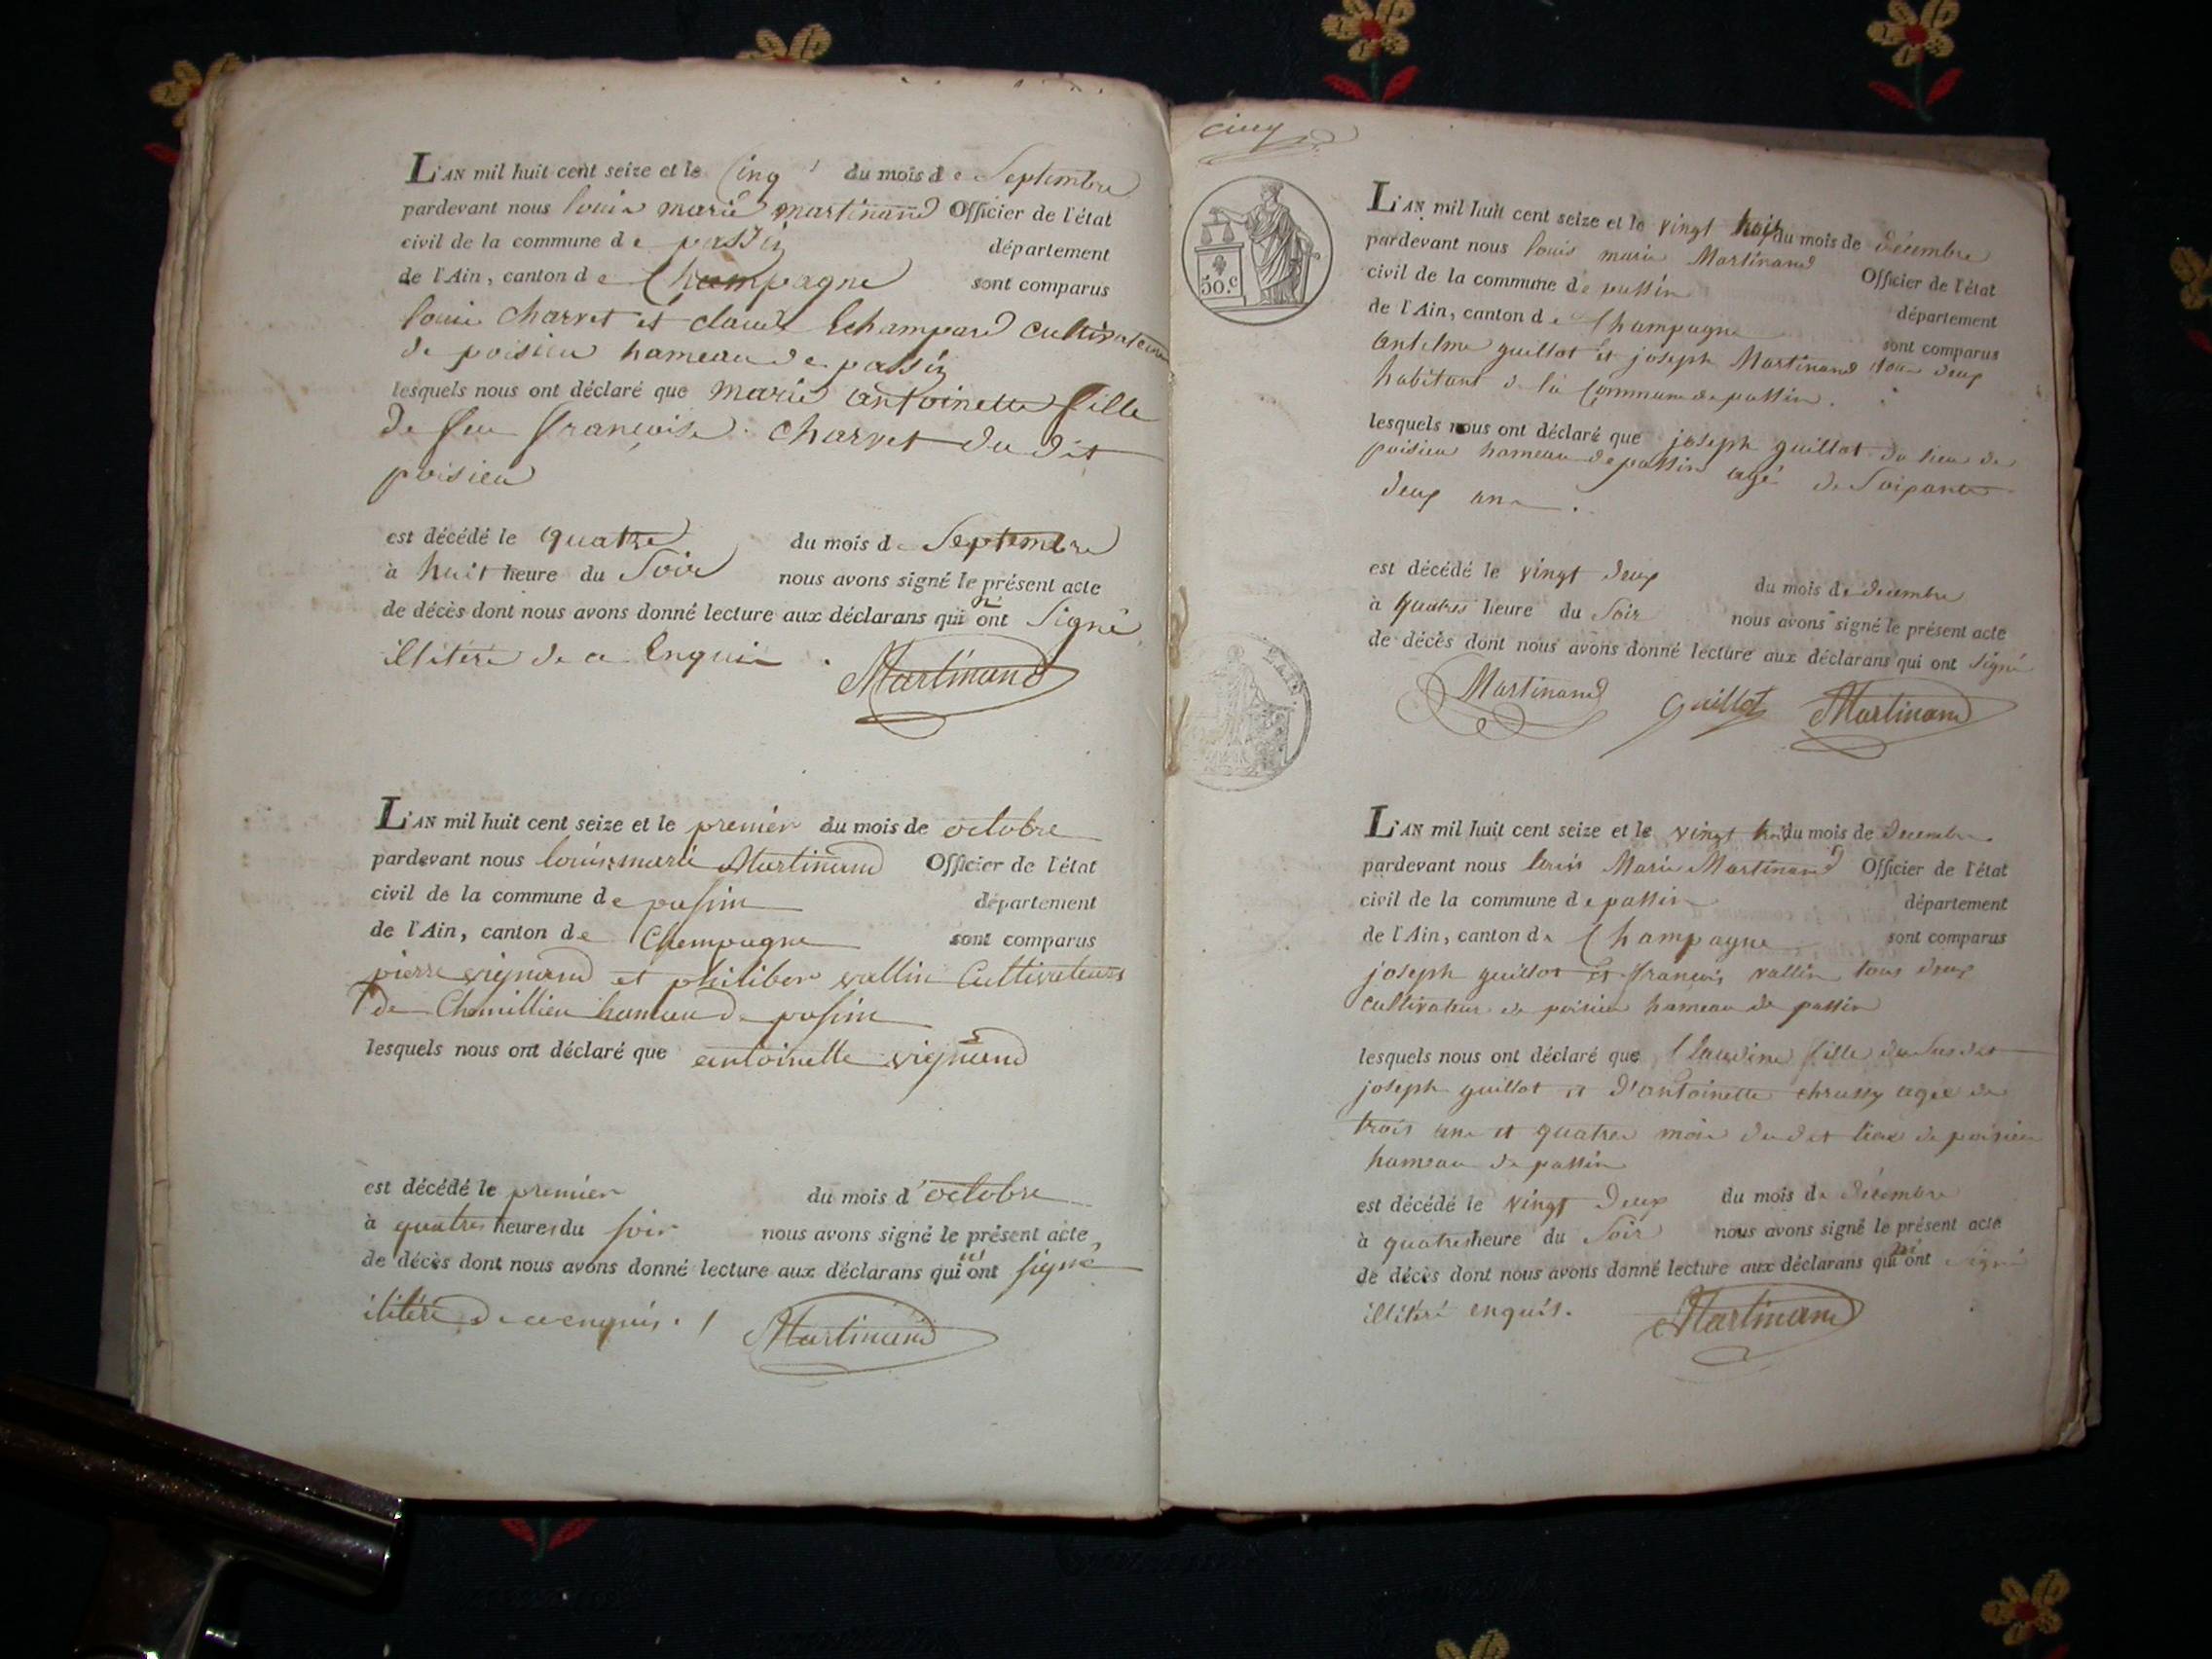 L'AN mil huit cent seize et le Cinq du mois de Septembre
pardevant nous louis marie martinand Officier de l'état
civil de la commune de passin département
de l'Ain, canton de Champagne sont comparus
louis charvet et claude Echampard cultivateurs
de poisieu hameau de passin
lesquels nous ont déclaré que marie antoinette fille
de feu francoise charvet du dit
poisieu
est décédé le quatre du mois de Septembre
à huit heure du Soir nous avons signé le présent acte
de décès dont nous avons donné lecture aux déclarans qui n' ont Signé
illiteré de ce Enquis .
Martinand
L'AN mil huit cent seize et le premier du mois de octobre
pardevant nous louis marie Martinand Officier de l'état
civil de la commune de passin département
de l'Ain, canton de Champagne sont comparus
pierre vignand et philiber vallin Cultivateurs
de Chemillieu hameau de passin
lesquels nous ont déclaré que antoinette vignand
est décédé le premier du mois d'octobre
à quatres heures du soir nous avons signé le présent acte
de décès dont nous avons donné lecture aux déclarans qui ont signé
ilitéré de ce enquis .
Martinand
cinq
50.c
L'AN mil huit cent seize et le vingt du mois de décembre
pardevant nous louis marie Martinand Officier de l'état
civil de la commune de passin département
de l'Ain, canton de Champagne sont comparus
antelme guillot et joseph Martinand tous deux
habitant de la Commune de passin .
lesquels nous ont déclaré que joseph guillot du lieu de
poisieu hameau de passin agé de Soixante
deux ans .
est décédé le vingt deux du mois de decembre
à quatres heure du Soir nous avons signé le présent acte
de décès dont nous avons donné lecture aux déclarans qui ont signé
Martinand guillot Martinand
L'AN mil huit cent seize et le vingt du mois de decembre .
pardevant nous louis Marie Martinand Officier de l'état
civil de la commune de passin département
de l'Ain, canton de Champagne sont comparus
joseph guillot et françois vallin tous deux
cultivateur de poisieu hameau de passin
lesquels nous ont déclaré que Claudine fille du susdit
joseph guillot et d'antoinette agée de
trois ans et quatres mois du dit lieu de poisieu
hameau de passin
est décédé le vingt Deux du mois de décembre
à quatres heure du Soir nous avons signé le présent acte
de décès dont nous avons donné lecture aux déclarans qui ont signé
illitéré enquis .
Martinand